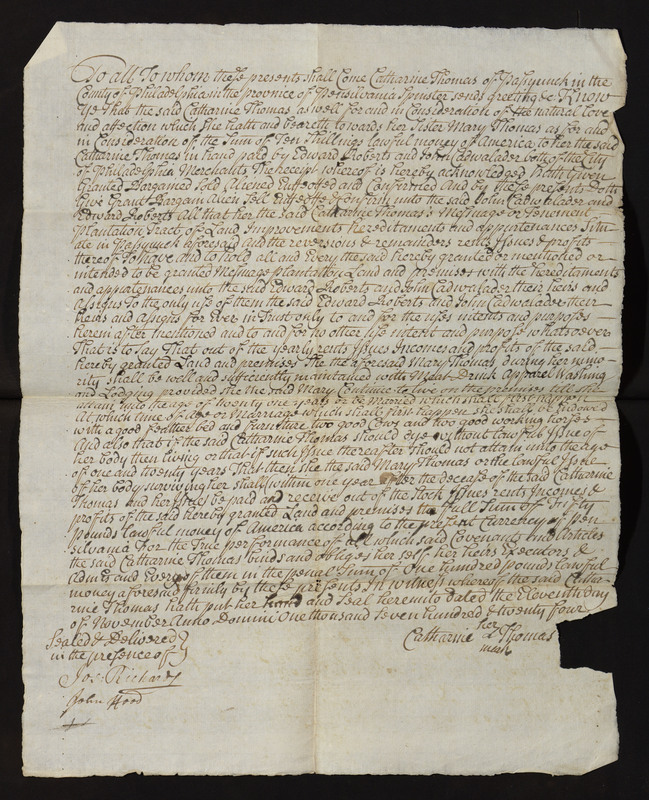 To all To whom these presents shall Come Catharine Thomas of Pasyunck in the
County of Philadelphia in the province of Pensilvania Spinster sends greeting &c Know
Yee That the said Catharine Thomas as well for and in Consideration of the natural love
and affection which She hath and beareth towards her Sister Mary Thomas as for and
in Consideration of the Sum of Ten Shillings lawful money of America to her the said
Catharine Thomas in hand paid by Edward Roberts and John Cadwalader both of the City
of Philadelphia Merchants The receipt whereof is hereby acknowledged Hath Given
Granted Bargained Sold Aliened Enfeoffed and Confirmed And by these presents Doth
Give Grant Bargain Alien Sell Enfeoffe & Confirm unto the said John Cadwalader and
Edward Roberts All that her the said Catharine Thomas's Messuage or Tenement
plantation Tract of Land Improvements hereditaments and appurtenances Situ-
ate in Pasyunck aforesaid And the reversions & remainders rents Issues & profits
thereof To have and to hold all and Every the said hereby granted or mentioned or
intended to be granted Messuage plantation Land and premises with the hereditaments
and appurtenances unto the said Edward Roberts and John Cadwalader their heirs and
assigns To the only use of them the said Edward Roberts and John Cadwalader their
heirs and assigns for Ever in Trust only to and for the uses intents and purposes
herein after mentioned and to and for no other use intent and purpose whatsoever
That is to Say That out of the yearly rents Issues Incomes and profits of the said
hereby granted Land and premises The the aforesaid Mary Thomas during her mino-
rity shall be well and sufficiently maintained with Meat Drink Apparel Washing
and Lodging provided she the said Mary Continue to live on the premises till she
attain unto the age of twenty one years or be married which shall first happen
At which time of Age or Marriage which shall first happen she shall be Endowed
with a good feather bed and furniture two good Cows and two good working horses
And also that if the said Catharine Thomas should dye without lawful Issue of
her body then living or that if such Issue thereafter should not attain unto the age
of one and twenty years That then she the said Mary Thomas or the lawful Issue
of her body surviving her shall within one year after the decease of the said Catharine
Thomas and her Issue be paid and receive out of the Stock Issues rents Incomes &
profits of the said hereby granted Land and premises the full Sum of Fifty
pounds lawful money of America according to the present Currency of Pen
silvania For the True performance of all which said Covenants and Articles
the said Catharine Thomas binds and obliges her self her heirs Executors &
Admrs and Every of them in the penal Sum of One hundred pounds lawful
money aforesaid firmly by these presents In witness whereof the said Catha-
rine Thomas hath put her hand and Seal hereunto Dated the Eleventh day
of November Anno Domini One thousand seven hundred & twenty four
Sealed & Delivered
in the presence of
her
Catharine Thomas
mark
Jos: Richards
John Hood